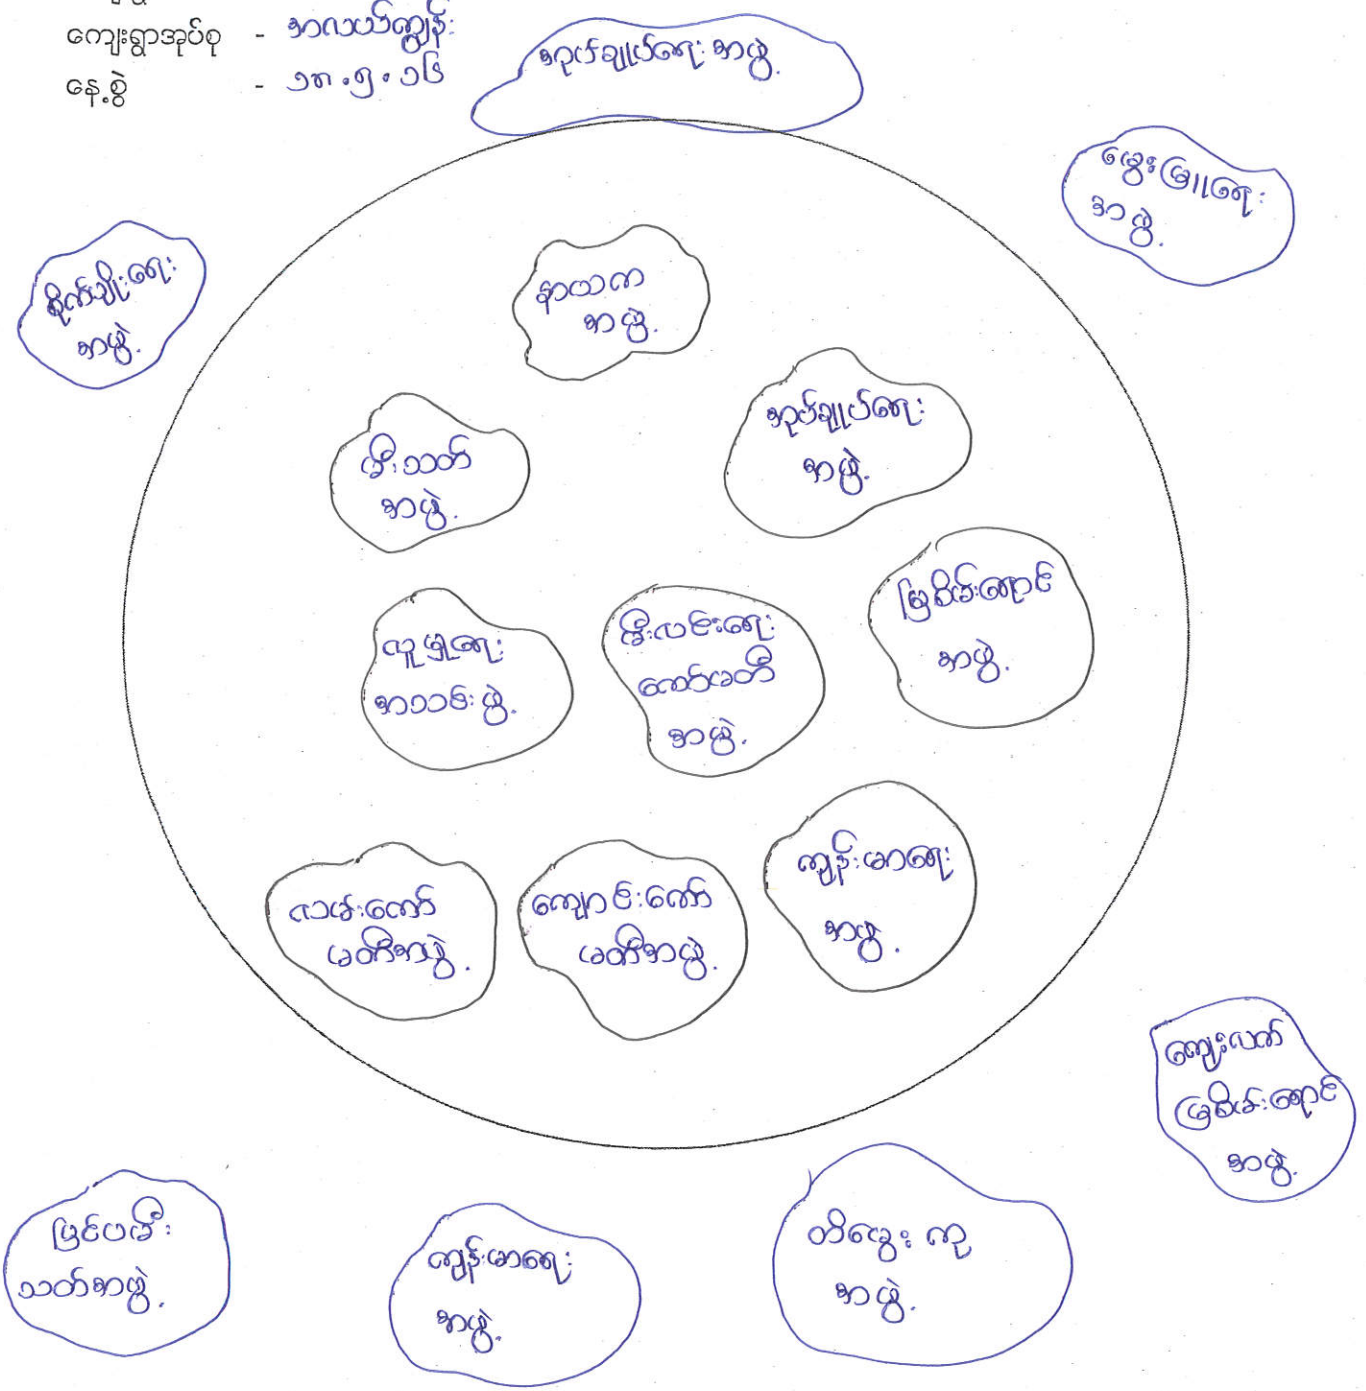 ကျေးရွာအုပ်စု - အလယ်ကျွန်း
နေ့စွဲ - ၁၈.၅.၁၆
အုပ်ချုပ်ရေး အဖွဲ့.
မွေးမြူရေး
အဖွဲ့.
စိုက်ပျိုးရေး
အဖွဲ့.
နာယက
အဖွဲ့.
အုပ်ချုပ်ရေး
အဖွဲ့.
မီးသတ်
အဖွဲ့.
မြစိမ်းရောင်
အဖွဲ့.
လူမှုရေး
အသင်းဖွဲ့.
မီးလင်းရေး
ကော်မတီ
အဖွဲ့.
ကျန်းမာရေး
အဖွဲ့.
လမ်းကော်
မတီအဖွဲ့.
ကျောင်းကော်
မတီအဖွဲ့.
ကျေးလက်
မြစိမ်းရောင်
အဖွဲ့.
ပြင်ပမီး
သတ်အဖွဲ့.
ကျန်းမာရေး
အဖွဲ့.
တိမွေး ကု
အဖွဲ့.